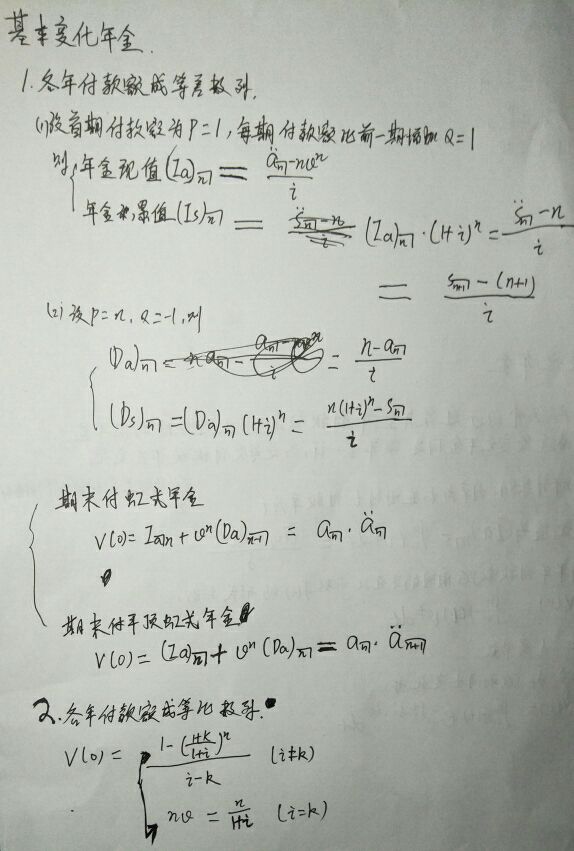 基本变化年金.
1.各年付款额成等差数列.
(1)设首期付款额为P=1,每期付款额比前一期增加Q=1
则{年金现值(Ia)n̅| = (ä n̅| - nvⁿ)/i
年金累积值(Is)n̅| = (Ia)n̅|·(1+i)ⁿ = (s̈ n̅| - n)/i
= (s n+1̅| - (n+1))/i
(2)设P=n,Q=-1,则
(Da)n̅| = (n - a n̅|)/i
(Ds)n̅| = (Da)n̅|(1+i)ⁿ = (n(1+i)ⁿ - s n̅|)/i
期末付虹式年金
V(0) = Ia n̅| + vⁿ(Da)n-1̅| = a n̅|·ä n̅|
期末付平顶虹式年金
V(0) = (Ia)n̅| + vⁿ(Da)n̅| = a n̅|·ä n+1̅|
2.各年付款额成等比数列.
V(0) = { (1 - ((1+k)/(1+i))ⁿ)/(i-k) (i≠k)
nv = n/(1+i) (i=k)